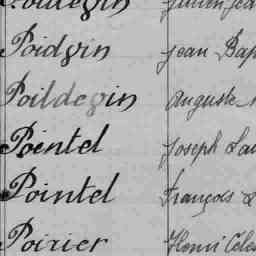 Poidvin Jean Bap
Poildevin Auguste
Pointel Joseph
Pointel François
Poirier Henri Céles